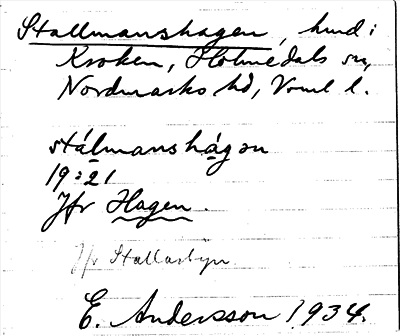 Stallmanshagen, hmd i
Kroken, Holmedals sn,
Nordmarks hd, Vrml l.
stálmanshágən
19:21
Jfr Hagen.
Jfr Stallarbyn
E. Andersson 1934.